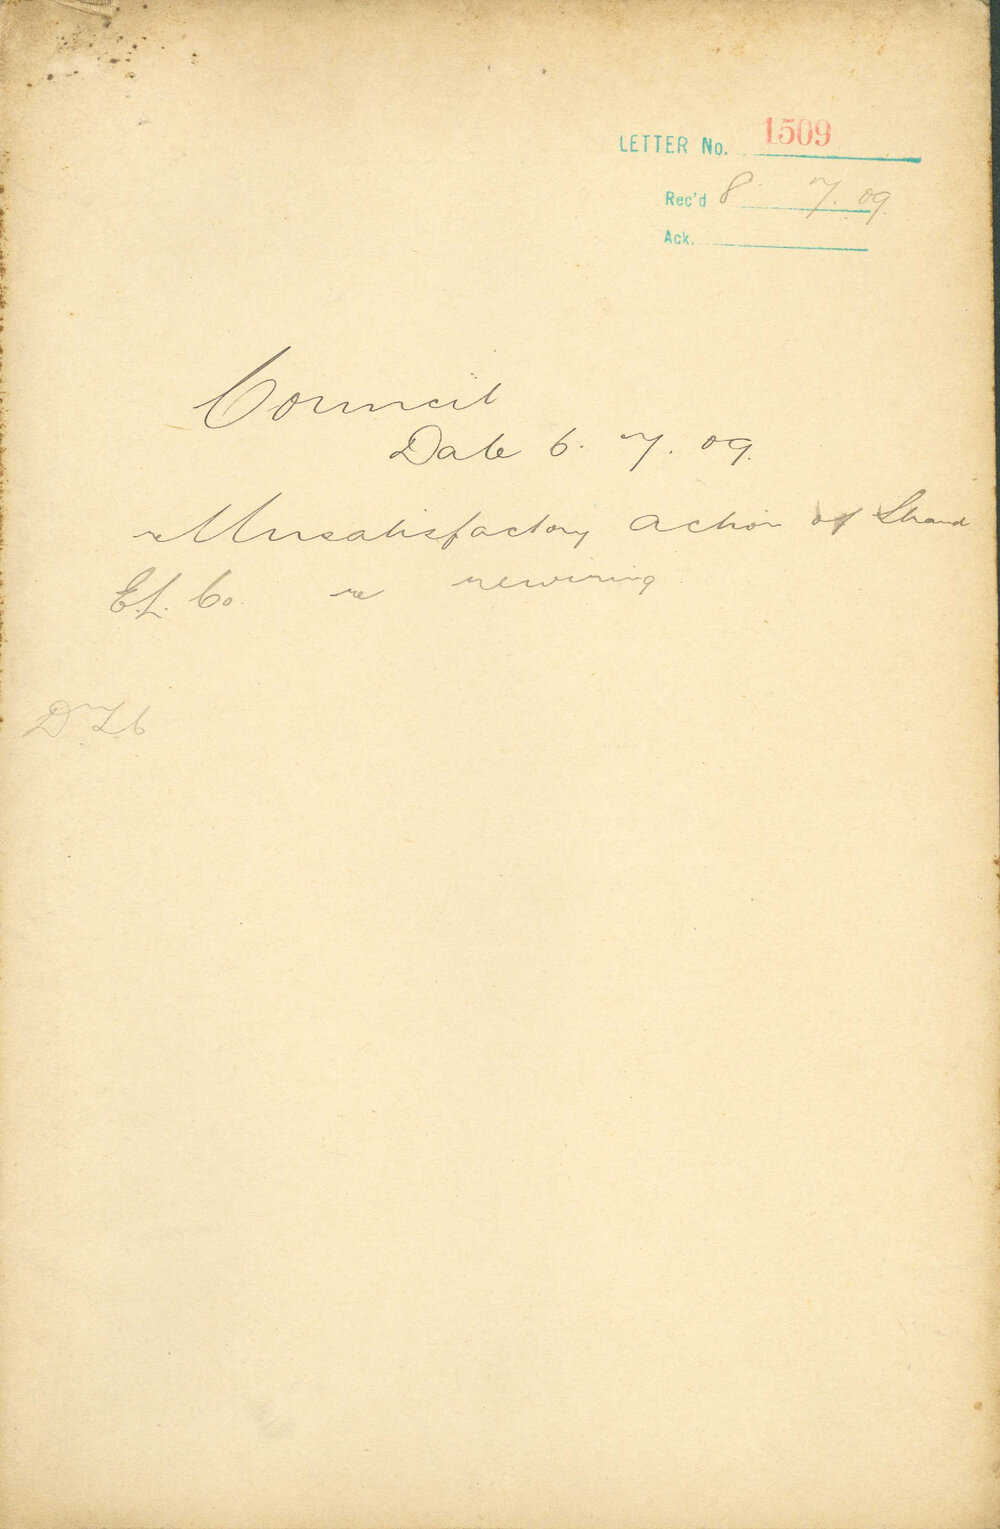 LETTER No. 1509
Rec'd 8. 7. 09.
Ack.
Council
Date 6. 7. 09.
re Unsatisfactory action of Strand
E.L. Co. re rewiring